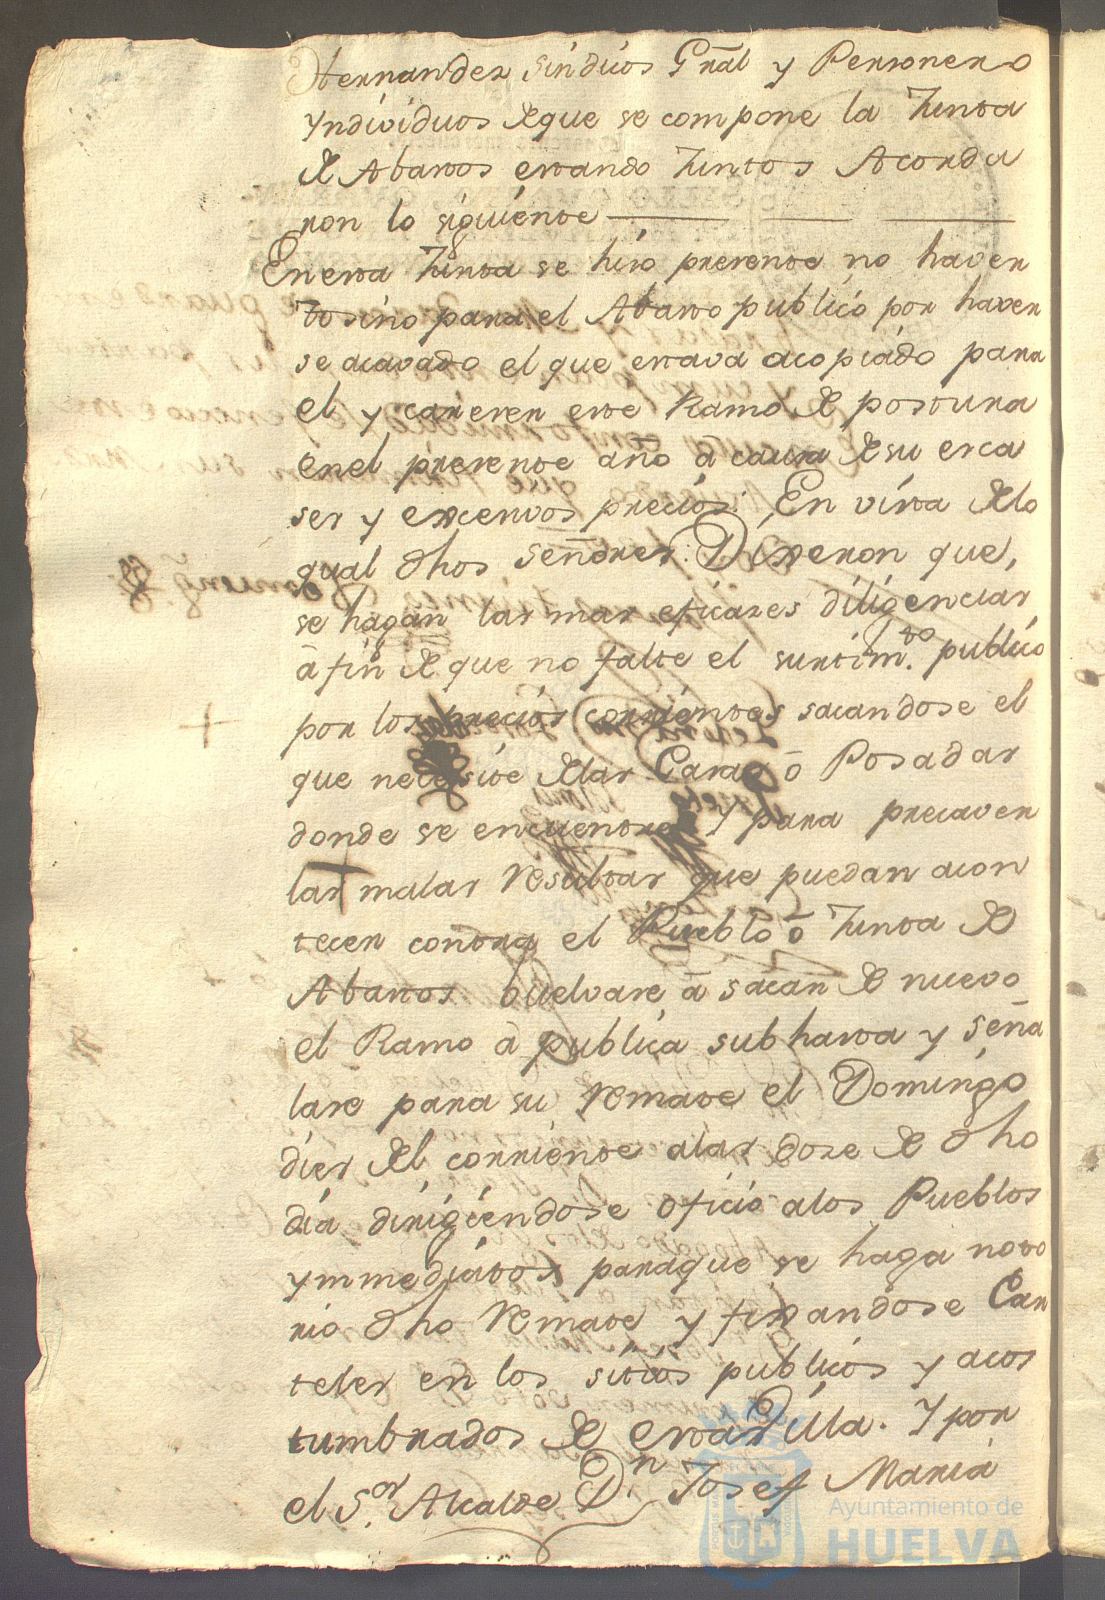 Hernandez Sindicos Gral y Personero
Yndividuos de que se compone la Junta
de Abastos estando Juntos Acorda
ron lo siguiente
En esta Junta se hiso presente no haver
tosino para el Abasto publico por haver
se acavado el que estava acopiado para
el y careser este Ramo de postura
en el presente año à causa de su esca
ses y excesivos precios: En vista de lo
qual dhos Señores: Dixeron que,
se hagan las mas eficazes diligencias
à fin de que no falte el surtim.to publico
por los precios corrientes sacandose el
que necesite de las Casas ò Posadas
donde se encuentre Y para precaver
las malas resultas que puedan acon
tecer contra el Pueblo ò Junta de
Abastos buelvase à sacar de nuevo
el Ramo à publica subhasta y seña
lase para su remate el Domingo
dies del corriente a las dose de dho
dia dirigiendose oficio a los Pueblos
ymmediatos para que se haga noto
rio dho remate y fixandose Car
teles en los sitios publicos y acos
tumbrados de esta Villa. Y por
el S.or Alcalde D.n Josef Maria
Ayuntamiento de
HUELVA